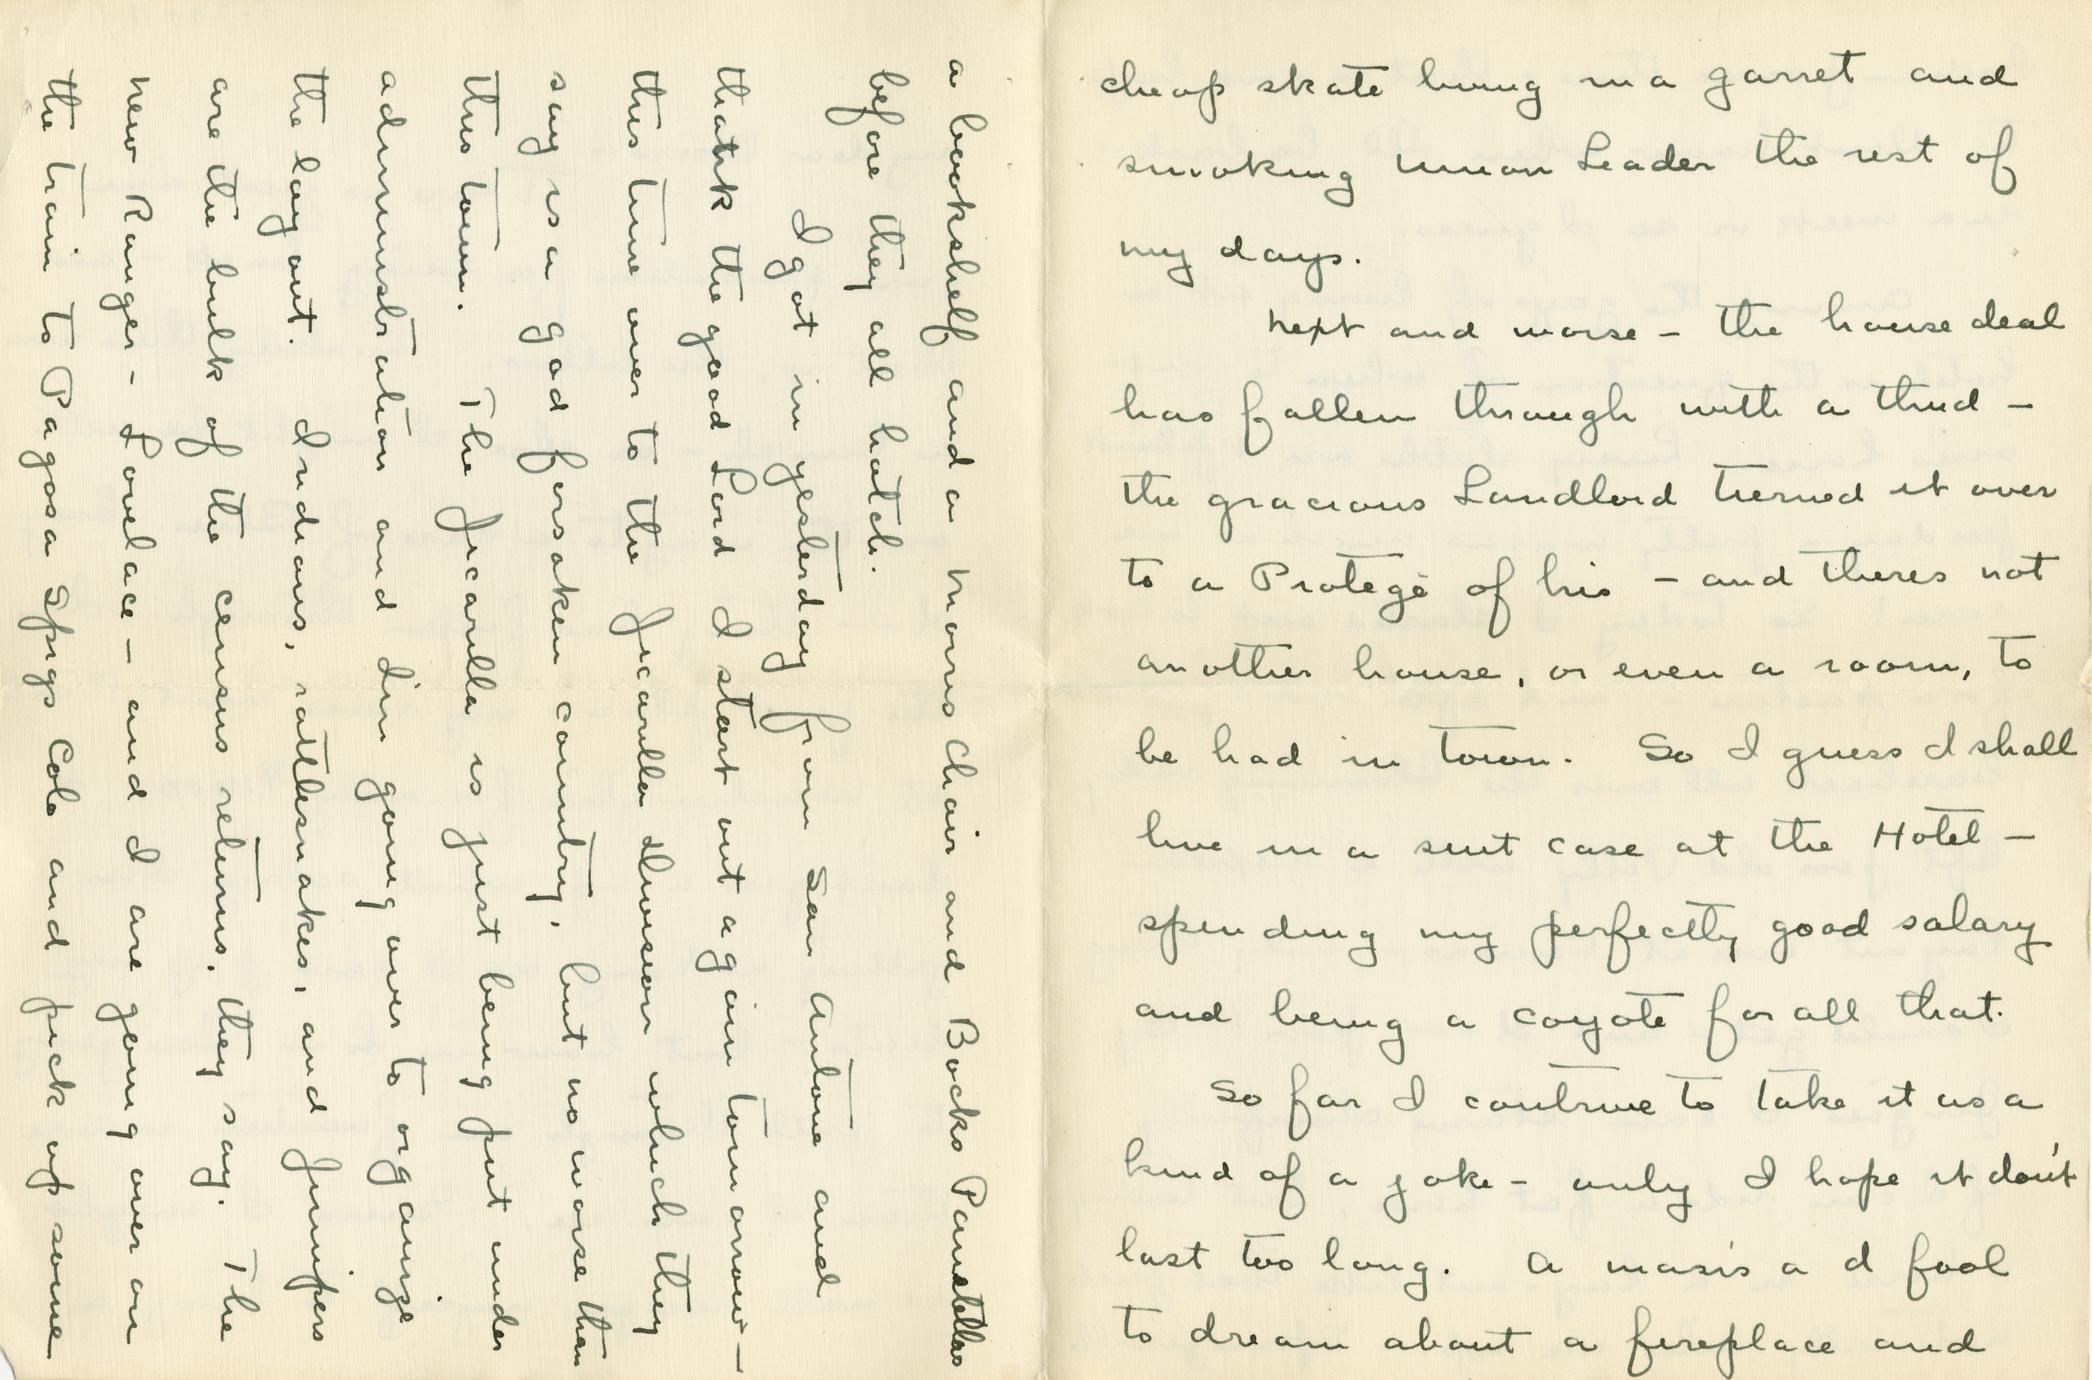 cheap skate living in a garret and
smoking Union Leader the rest of
my days.
Next and worse – the house deal
has fallen through with a thud –
the gracious Landlord turned it over
to a Protegé of his – and theres not
another house, or even a room, to
be had in town. So I guess I shall
live in a suit case at the Hotel –
spending my perfectly good salary
and being a coyote for all that.
So far I contrive to take it as a
kind of a joke – only I hope it don't
last too long. A man's a d fool
to dream about a fireplace and
a bookshelf and a morris chair and Bocks Panetellas
before they all hatch.
I got in yesterday from San Antone and
thank the good Lord I start out again tomorrow –
this time over to the Jicarilla division which they
say is a god forsaken country, but no worse than
this town. The Jicarilla is just being put under
administration and Jim going over to organize
the lay out. Indians, rattlesnakes, and Junipers
are the bulk of the census returns, they say. The
new Ranger – Lovelace – and I are going over on
the train to Pagosa Spigs Colo and pick up some